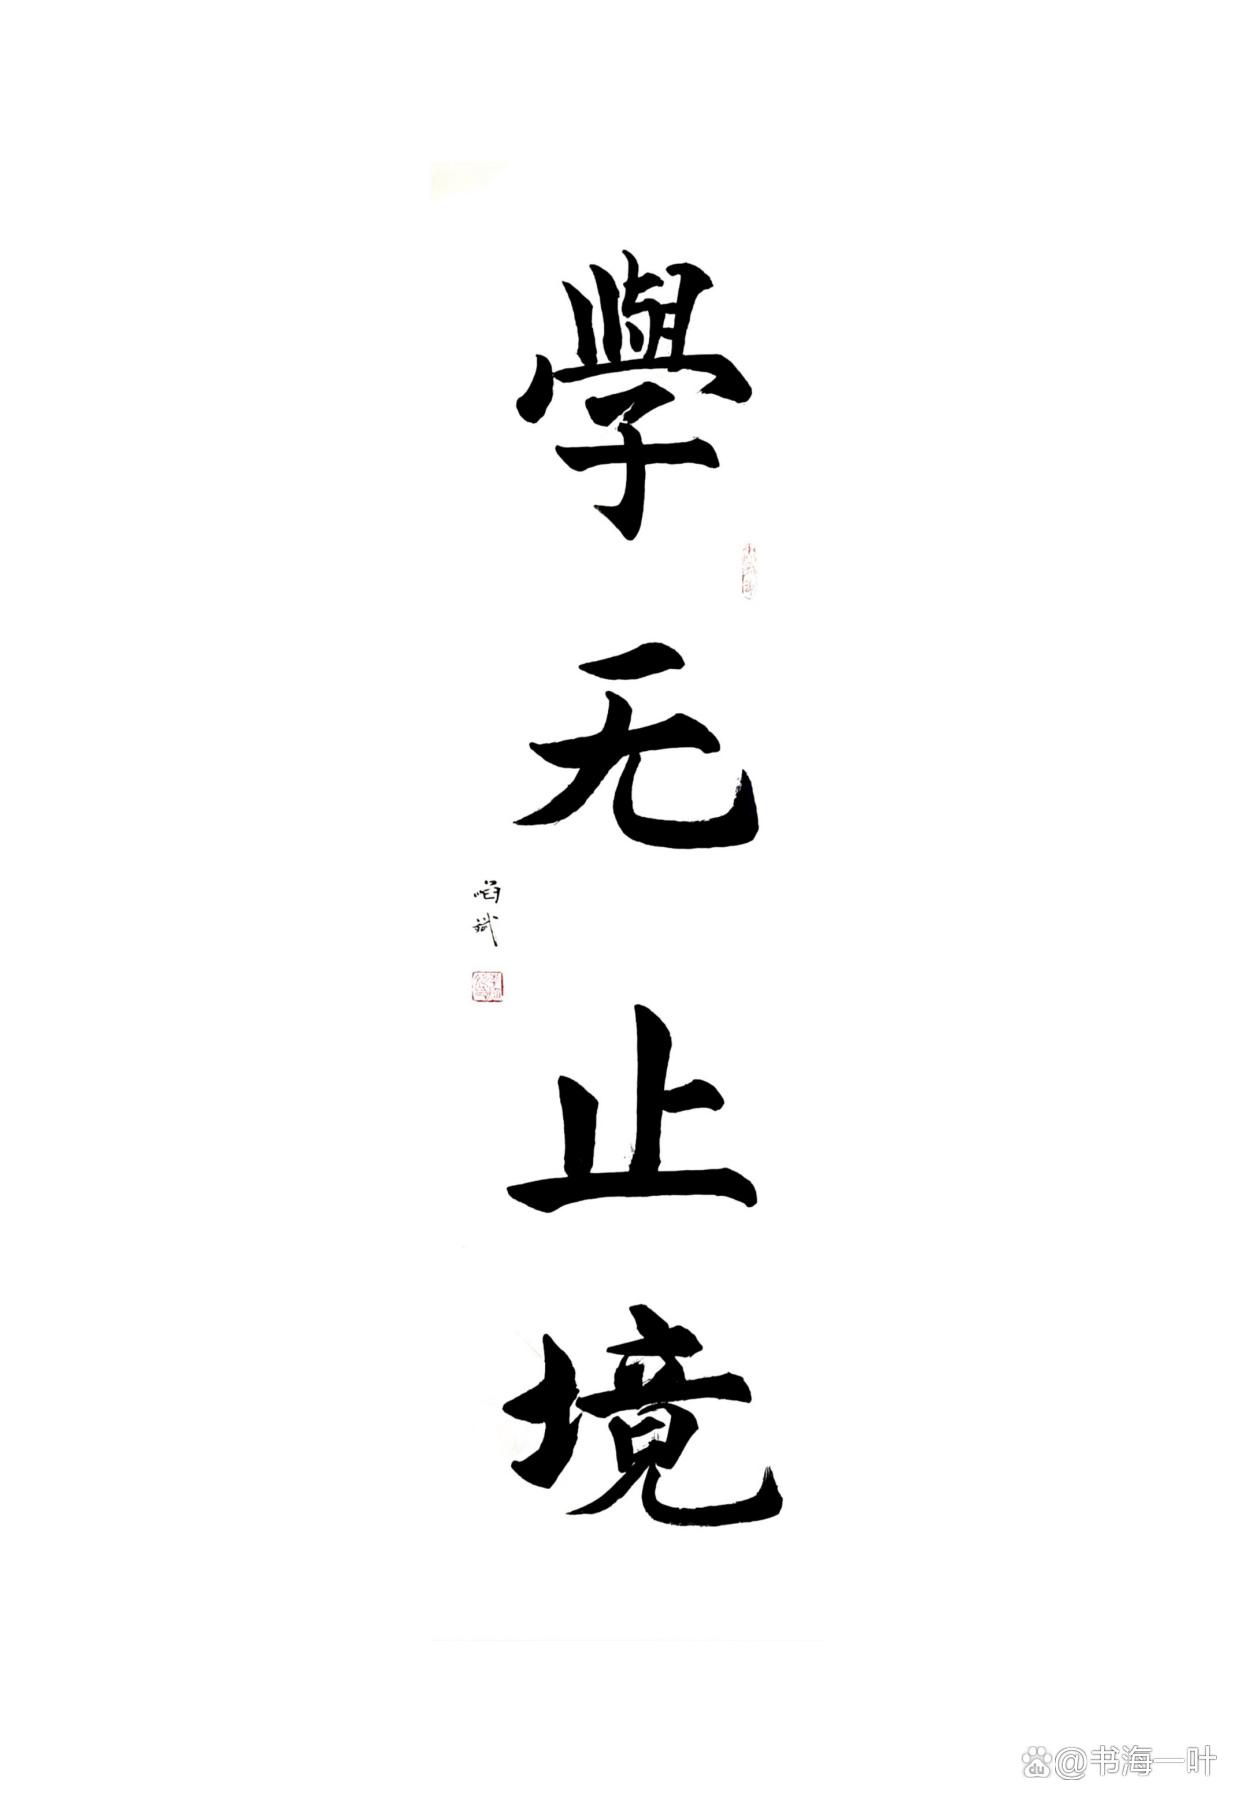 學无止境
@书海一叶